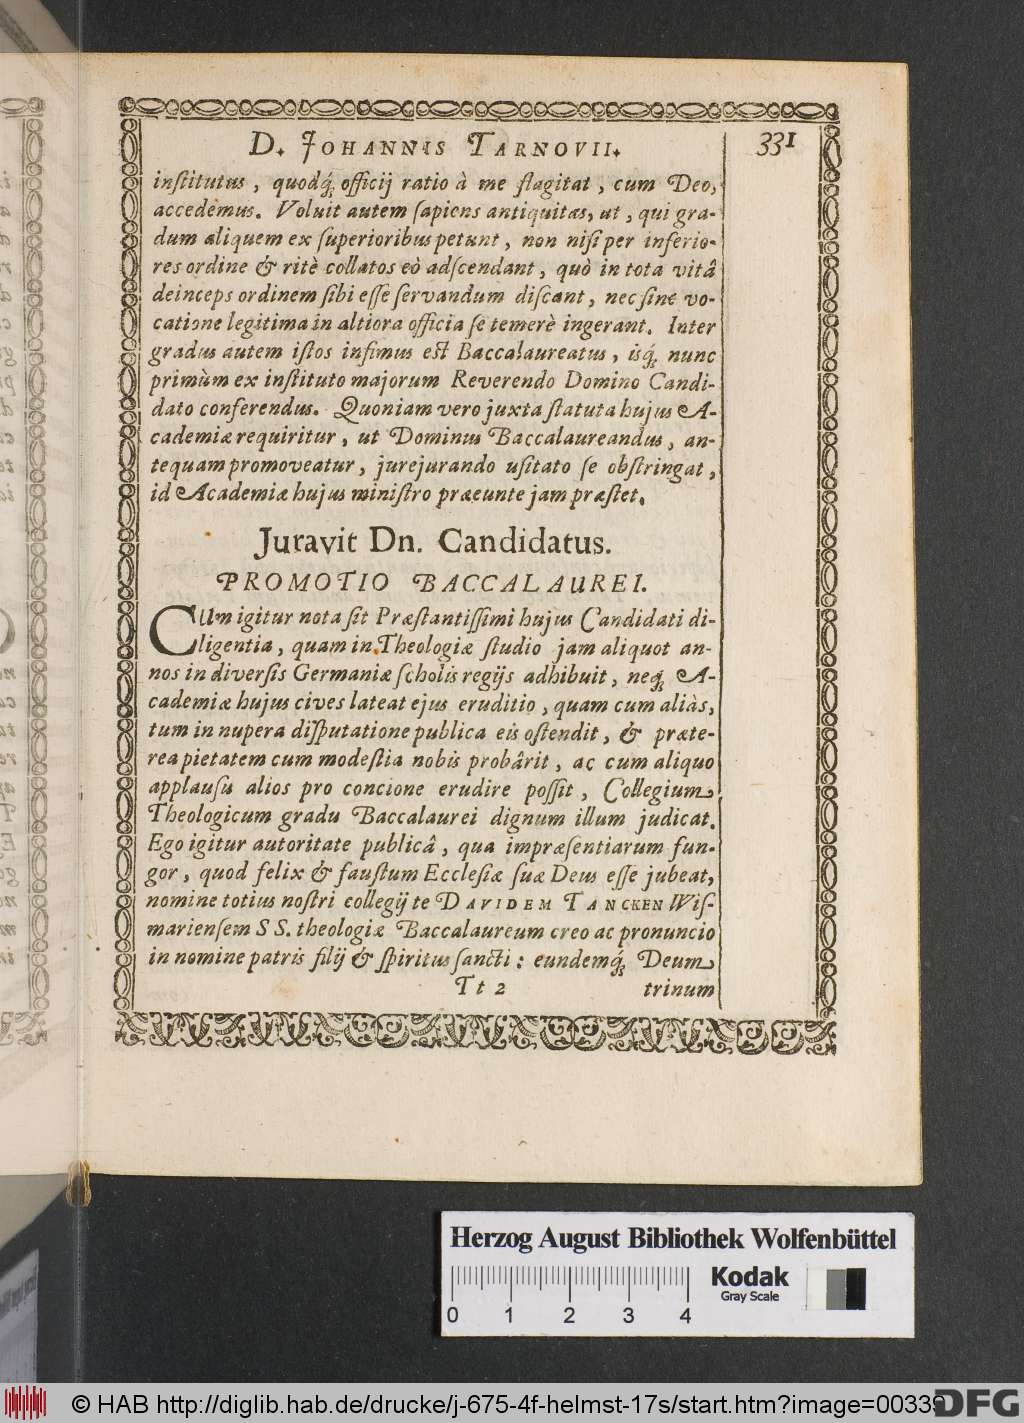 D. JOHANNIS TARNOVII. 331
institutus, quodq́; officij ratio à me flagitat, cum Deo,
accedemus. Voluit autem sapiens antiquitas, ut, qui gra-
dum aliquem ex superioribus petunt, non nisi per inferio-
res ordine & ritè collatos eò adscendant, quò in tota vitâ
deinceps ordinem sibi esse servandum discant, nec sine vo-
catione legitima in altiora officia se temerè ingerant. Inter
gradus autem istos infimus est Baccalaureatus, isq́; nunc
primùm ex instituto majorum Reverendo Domino Candi-
dato conferendus. Quoniam vero juxta statuta hujus A-
cademiæ requiritur, ut Dominus Baccalaureandus, an-
tequam promoveatur, jurejurando usitato se obstringat,
id Academiæ hujus ministro præeunte jam præstet.
Juravit Dn. Candidatus.
PROMOTIO BACCALAUREI.
CUm igitur nota sit Præstantissimi hujus Candidati di-
ligentia, quam in Theologiæ studio jam aliquot an-
nos in diversis Germaniæ scholis regijs adhibuit, neq́; A-
cademiæ hujus cives lateat ejus eruditio, quam cum aliàs,
tum in nupera disputatione publica eis ostendit, & præte-
rea pietatem cum modestia nobis probârit, ac cum aliquo
applausu alios pro concione erudire possit, Collegium
Theologicum gradu Baccalaurei dignum illum judicat.
Ego igitur autoritate publicâ, qua impræsentiarum fun-
gor, quod felix & faustum Ecclesiæ suæ Deus esse jubeat,
nomine totius nostri collegij te DAVIDEM TANCKEN Wis-
mariensem SS. theologiæ Baccalaureum creo ac pronuncio
in nomine patris filij & spiritus sancti: eundemq́; Deum
Tt 2 trinum
Herzog August Bibliothek Wolfenbüttel
Kodak
Gray Scale
0 1 2 3 4
© HAB http://diglib.hab.de/drucke/j-675-4f-helmst-17s/start.htm?image=00339
DFG